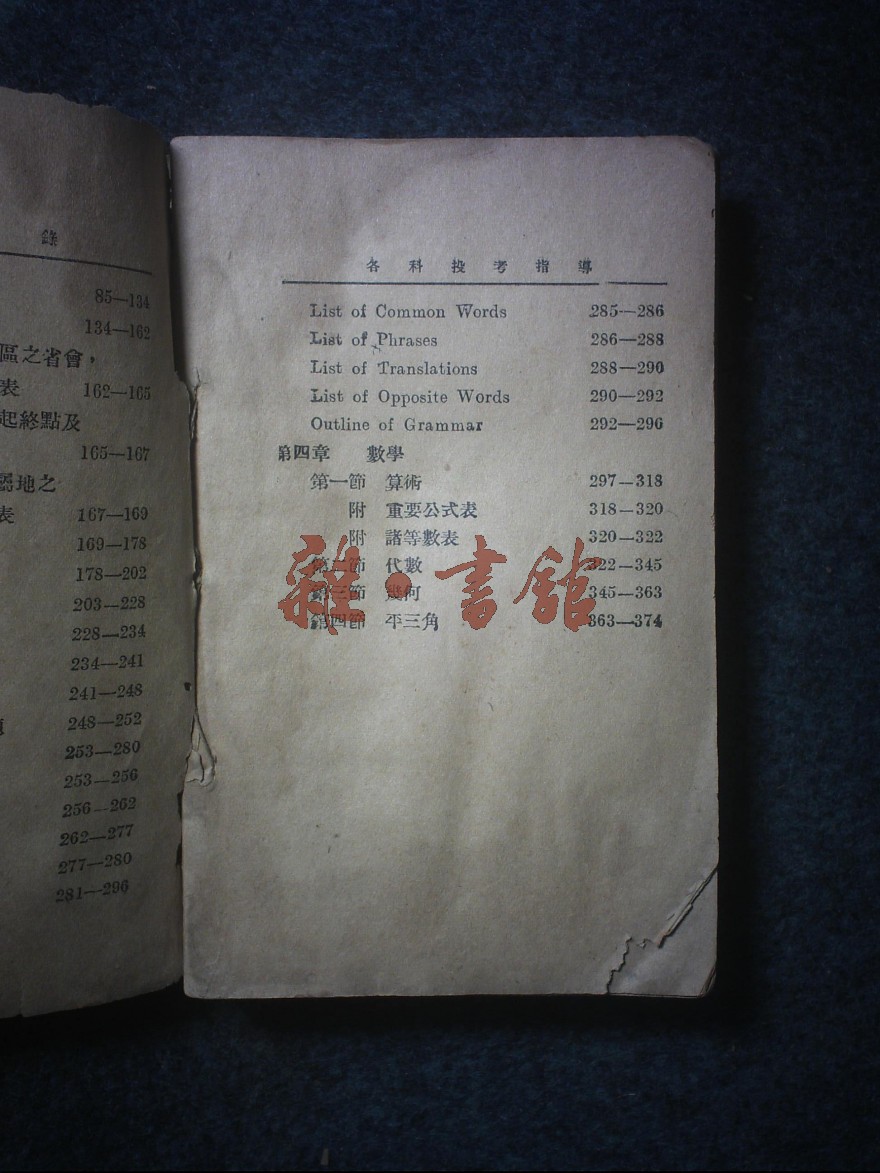 錄
85—134
134—162
區之省會，
表 162—165
起終點及
165—167
屬地之
表 167—169
169—178
178—202
203—228
228—234
234—241
241—248
248—252
253—280
253—256
256—262
262—277
277—280
281—296
各科投考指導
List of Common Words 285—286
List of Phrases 286—288
List of Translations 288—290
List of Opposite Words 290—292
Outline of Grammar 292—296
第四章 數學
第一節 算術 297—318
附 重要公式表 318—320
附 諸等數表 320—322
第二節 代數 322—345
第三節 幾何 345—363
第四節 平三角 363—374
雜·書館